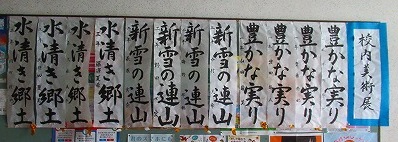 校内美術展
豊かな実り
豊かな実り
豊かな実り
豊かな実り
新雪の連山
新雪の連山
新雪の連山
新雪の連山
水清き郷土
水清き郷土
水清き郷土
水清き郷土